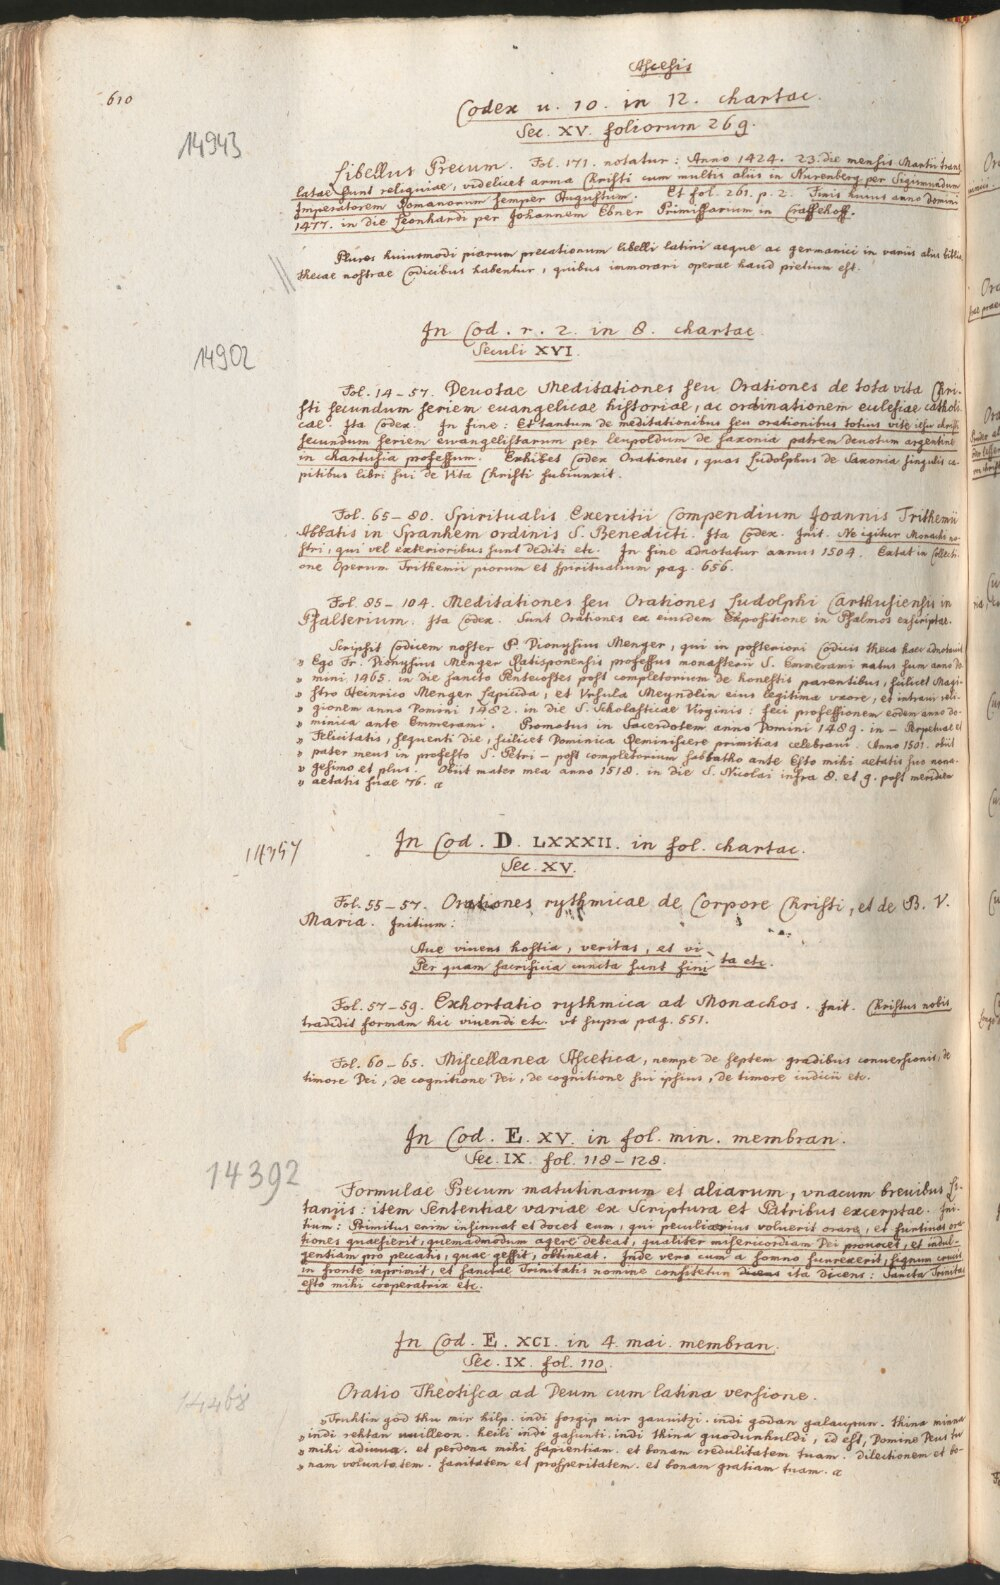 610
Ascesis
Codex u. 10. in 12. chartac.
Sec. XV. foliorum 269.
14943
Libellus Precum. Fol. 171. notatur: Anno 1424. 23. die mensis Martii trans
latae sunt reliquiae, videlicet arma Christi cum multis aliis in Nurenberg per Sigismundum
Imperatorem Romanorum semper Augustum. Et fol. 261. p. 2. Finis huius anno Domini
1477. in die Leonhardi per Johannem Ebner Primissarium in Craffthoff.
Plures huiusmodi piarum precationum libelli latini aeque ac germanici in variis aliis biblio
thecae nostrae Codicibus habentur, quibus immorari operae haud pretium est.
In Cod. r. 2. in 8. chartac.
Seculi XVI.
14902
Fol. 14-57. Deuotae Meditationes seu Orationes de tota vita Chri-
sti secundum seriem euangelicae historiae, ac ordinationem eulesiae catholi
cae. Ita Codex. In fine: Et tantum de meditationibus seu orationibus totius vite iesu christi
secundum seriem ewangelistarum per leupoldum de saxonia patrem deuotum argentine
in chartusia professum. Exhibet Codex Orationes, quas Ludolphus de Saxonia singulis ca-
pitibus libri sui de Vita Christi subiunxit.
Fol. 65-80. Spiritualis Exercitii Compendium Joannis Trithemii
Abbatis in Spanhem ordinis S. Benedicti. Ita Codex. Init. Ne igitur Monachi no-
stri, qui vel exterioribus sunt dediti etc. In fine adnotatur annus 1504. Extat in Collecti-
one Operum Trithemii piorum et spiritualium pag. 656.
Fol. 85-104. Meditationes seu Orationes Ludolphi Carthusiensis in
Psalterium. Ita Codex. Sunt Orationes ex eiusdem Expositione in Psalmos exscriptae.
Scripsit Codicem noster P. Dionysius Menger, qui in posteriori Codicis theca haec adnotauit
„ Ego Fr. Dionysius Menger Ratisponensis professus monasterii S. Emmerami natus sum anno Do-
„ mini 1465. in die sancto Pentecostes post completorium de honestis parentibus, scilicet Magi-
„ stro Heinrico Menger sapiuda, et Vrsula Meyndlin eius legitima vxore, et intraui reli-
„ gionem anno Domini 1482. in die S. Scholasticae Virginis: feci professionem eodem anno do-
„ minica ante Emmerami. Promotus in Sacerdotem anno Domini 1489. in - Perpetuae et
„ Felicitatis, sequenti die, scilicet Dominica Reminiscere primitias celebraui. Anno 1501. obiit
„ pater meus in profesto S. Petri - post completorium sabbatho ante Esto mihi aetatis suo nona-
„ gesimo et plus. Obiit mater mea anno 1518. in die S. Nicolai infra 8. et 9. post meridiem
„ aetatis suae 76. "
In Cod. D. LXXXII. in fol. chartac.
Sec. XV.
Fol. 55-57. Orationes rythmicae de Corpore Christi, et de B. V.
Maria. Initium:
Aue viuens hostia, veritas, et vi
Per quam sacrificia cuncta sunt fini ta etc.
Fol. 57-59. Exhortatio rythmica ad Monachos. Init. Christus nobis
tradidit formam hic viuendi etc. vt supra pag. 551.
Fol. 60-65. Miscellanea Ascetica, nempe de septem gradibus conuersionis, de
timore Dei, de cognitione Dei, de cognitione sui ipsius, de timore iudicii etc.
In Cod. E. XV. in fol. min. membran.
Sec. IX. fol. 118-128.
14392
Formulae Precum matutinarum et aliarum, vnacum breuibus Li-
taniis: item Sententiae variae ex Scriptura et Patribus excerptae. Ini-
tium: Primitus enim insinuat et docet eum, qui peculiarius voluerit orare, et furtiuas ora
tiones quaesierit, quemadmodum agere debeat, qualiter misericordiam Dei prouocet, et indul-
gentiam pro peccatis, quae gessit, obtineat. Inde vero cum a somno surrexerit, signum crucis
in fronte inprimit, et sanctae Trinitatis nomine confitetur ita dicens: Sancta Trinitas
esto mihi cooperatrix etc.
In Cod. E. XCI. in 4. mai. membran.
Sec. IX. fol. 110.
14468
Oratio Theotisca ad Deum cum latina versione.
„ Truhtin god thu mir hilp. indi forgip mir gauuitzi. indi godan galaupun. thina minna
„ indi rehtan uuilleon. heili indi gasunti. indi thina guodunhuldi, id est, Domine Deus tu
„ mihi adiuua. et perdona mihi sapientiam. et bonam credulitatem tuam. dilectionem et bo-
„ nam voluntatem. sanitatem et prosperitatem. et bonam gratiam tuam. "